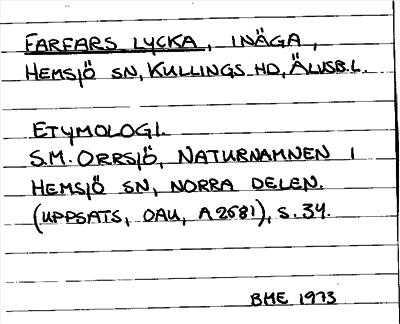 FARFARS LYCKA, INÄGA,
HEMSJÖ SN, KULLINGS HD, ÄLVSB.L.
ETYMOLOGI.
S.M. ORRSJÖ, NATURNAMNEN I
HEMSJÖ SN, NORRA DELEN.
(UPPSATS, OAU, A2681), S. 34.
BME 1973